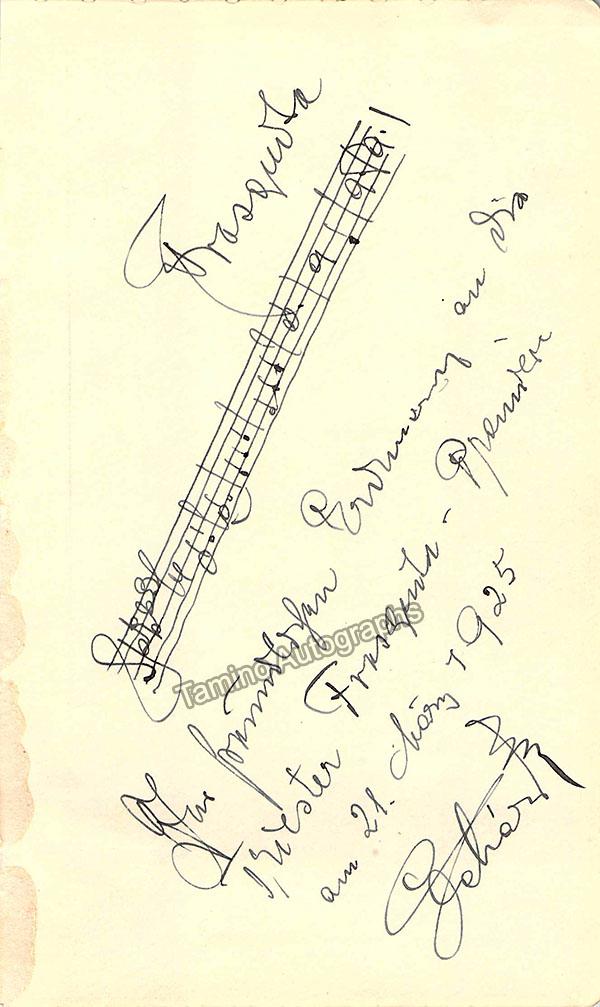 Frasquita
Zur freundlichen Erinnerung an die
Triester Frasquita-Première
am 21. März 1925
Lehár
TaminoAutographs